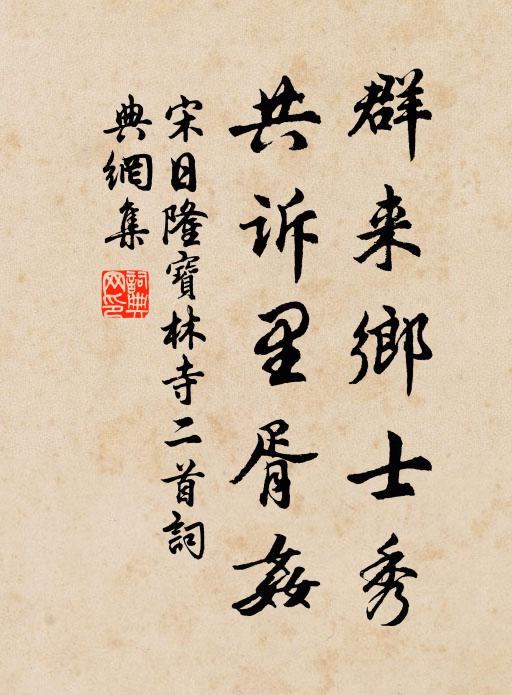 群来鄉士秀
共訴里胥姦
宋日隆寶林寺二首詞
典網集
詞典网印